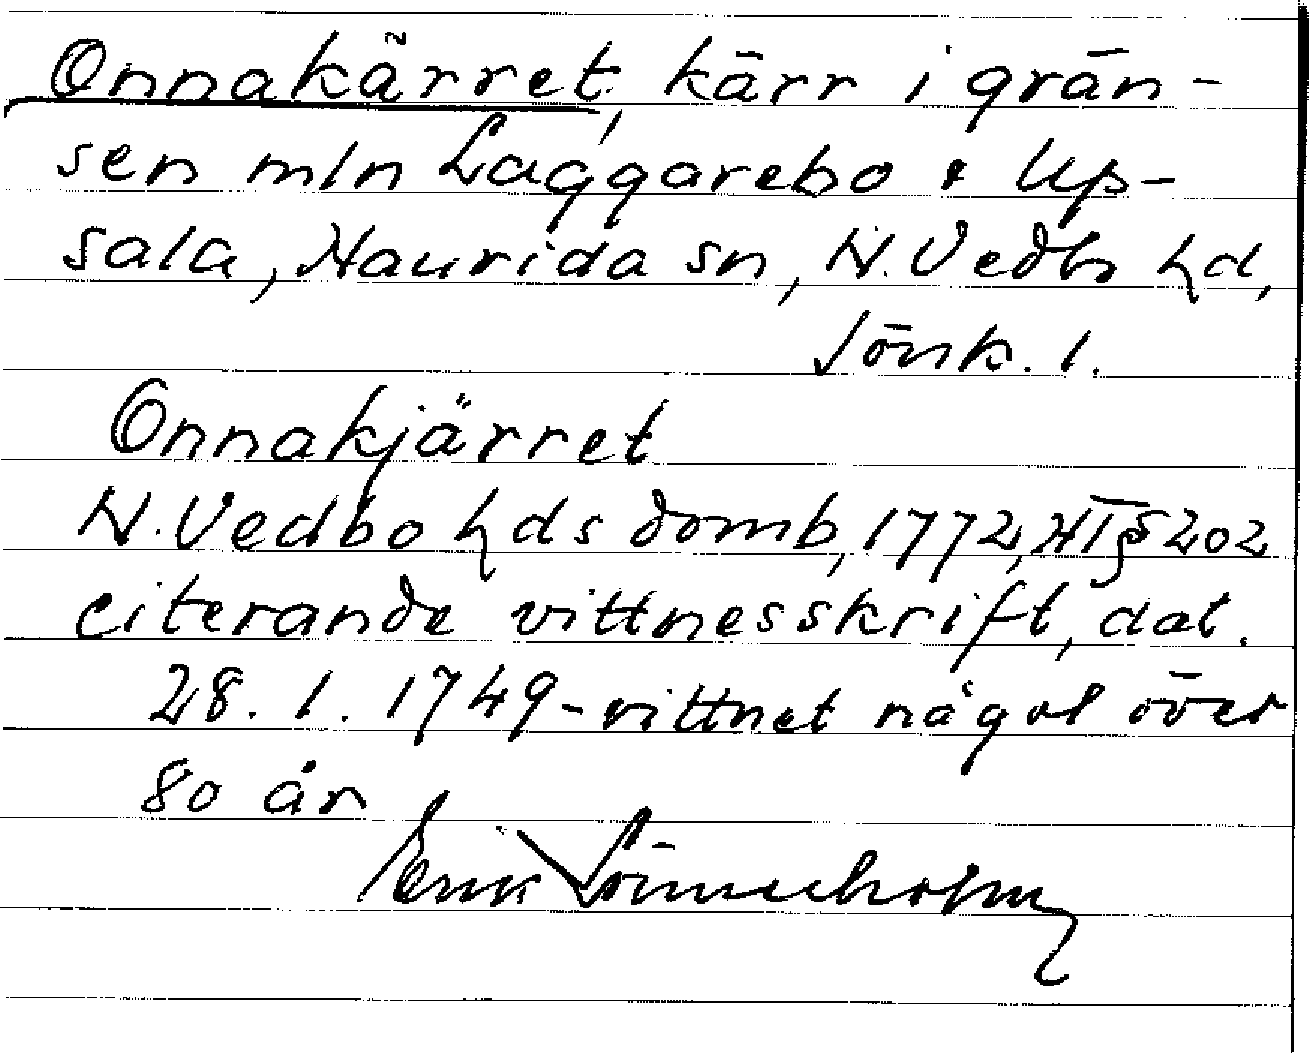 Onnakärret, kärr i grän-
sen mln Laggarebo & Up-
sala, Haurida sn, N. Vedbo hd,
Jönk. l.
Onnakjärret
N. Vedbo hds domb, 1772, HT § 202
citerande vittnesskrift, dat.
28. 1. 1749 - vittnet något över
80 år
Erik